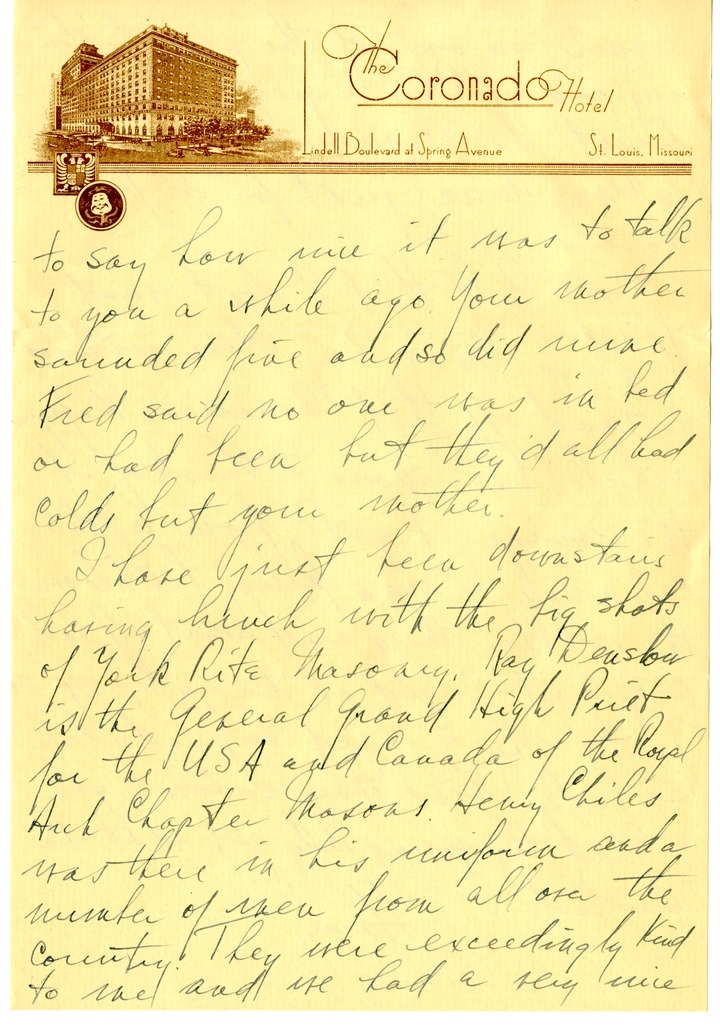 The Coronado Hotel
Lindell Boulevard at Spring Avenue St. Louis, Missouri
to say how nice it was to talk
to you a while ago. Your mother
sounded fine and so did mine.
Fred said no one was in bed
or had been but they'd all had
colds but your mother.
I have just been downstairs
having lunch with the big shots
of York Rite Masonry. Ray Denslow
is the General Grand High Priet
for the USA and Canada of the Royal
Arch Chapter Masons. Henry Chiles
was there in his uniform and a
number of men from all over the
country. They were exceedingly kind
to me and we had a very nice